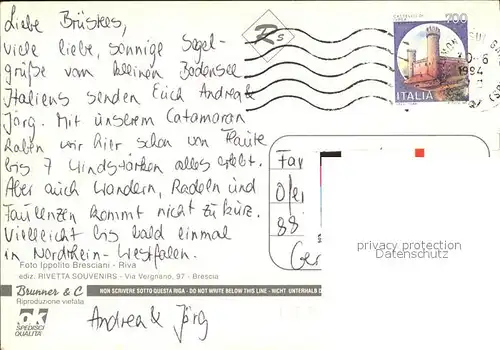 Liebe Brüskes,
viele liebe, sonnige Segel-
grüße vom kleinen Bodensee
Italiens senden Euch Andrea &
Jörg. Mit unserem Catamaran
haben wir hier schon von Flaute
bis 7 Windstärken alles erlebt.
Aber auch Wandern, Radeln und
Faulenzen kommt nicht zu kurz.
Vielleicht bis bald einmal
in Nordrhein-Westfalen.
Andrea & Jörg
Foto Ippolito Bresciani - Riva
ediz. RIVETTA SOUVENIRS - Via Veignano, 97 - Brescia
Brunner & C
Riproduzione vietata
NON SCRIVERE SOTTO QUESTA RIGA - DO NOT WRITE BELOW THIS LINE - NICHT UNTERHALB D
ok
SPEDISCI
QUALITÀ
R5
700
ITALIA
1994
Fam
88
privacy protection
Datenschutz